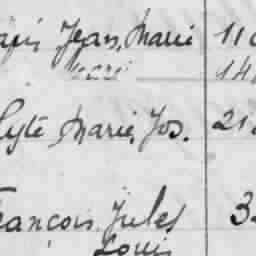 Jean, Marie 11
14
lyte Marie, Jos. 21
François Jules 3
Louis